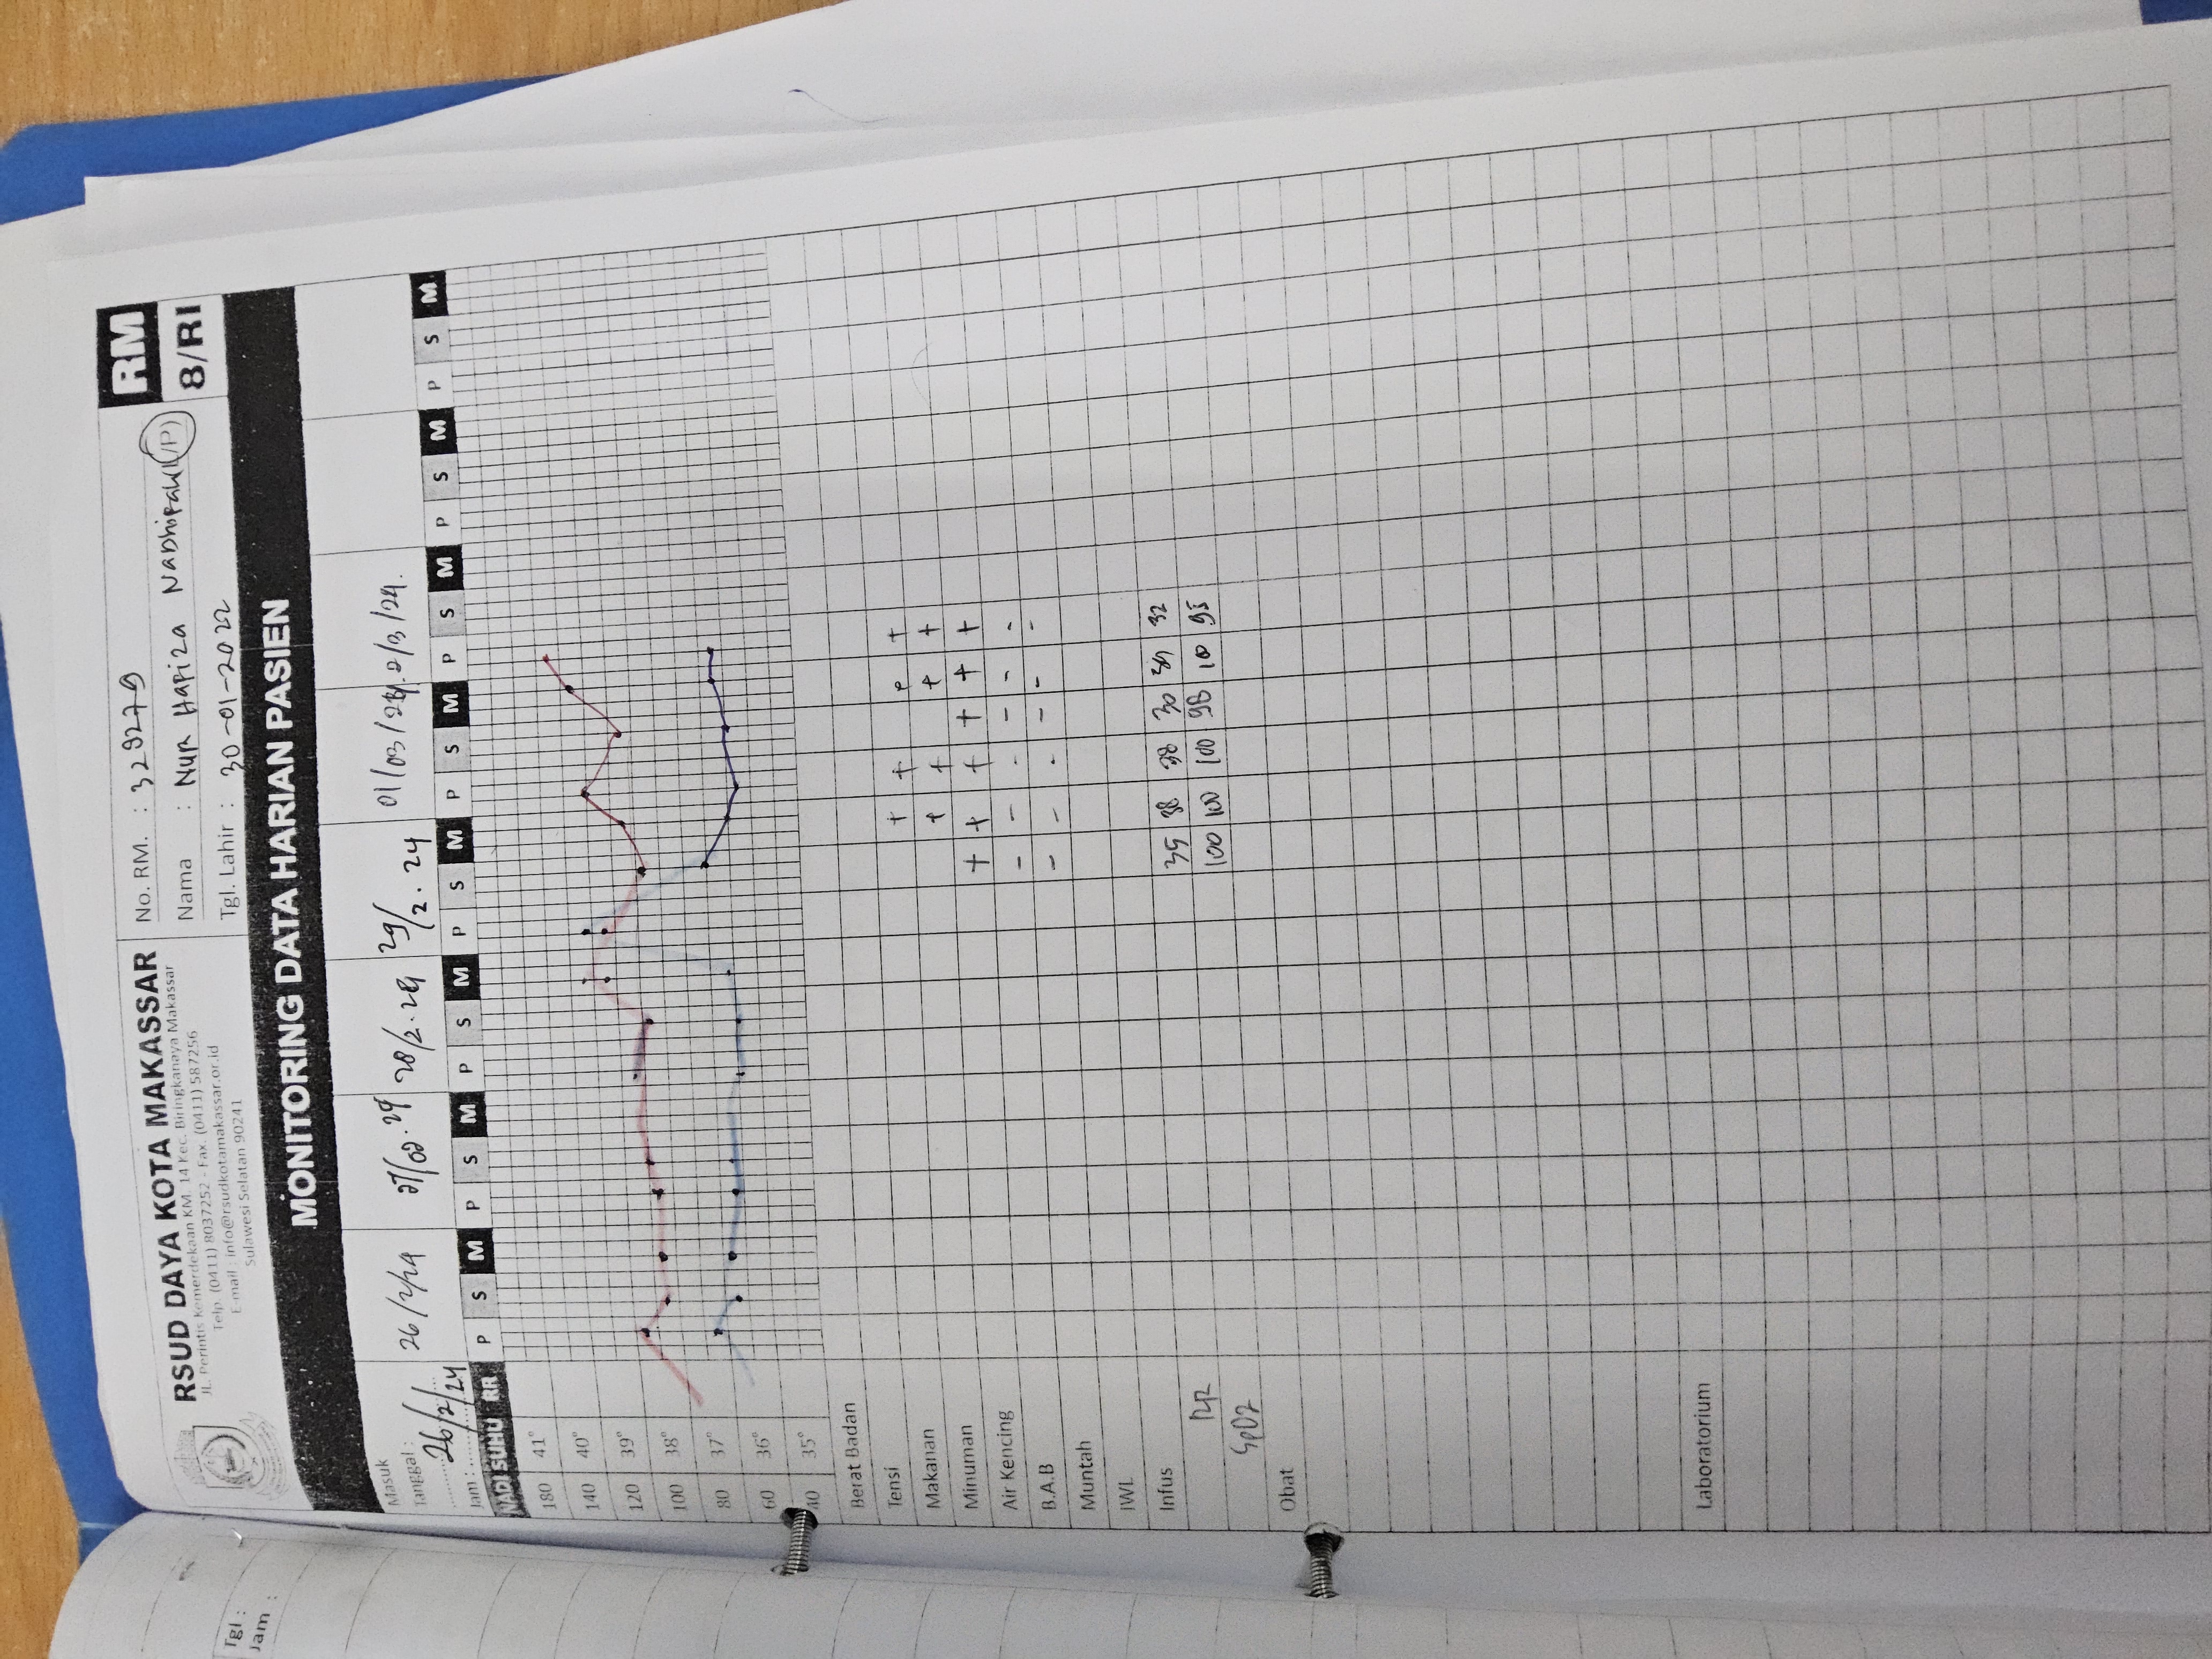 Tgl :
Jam :
RSUD DAYA KOTA MAKASSAR
JL. Perintis Kemerdekaan KM. 14 Kec. Biringkanaya Makassar
Telp. (0411) 8037252 - Fax. (0411) 587256
E-mail : info@rsudkotamakassar.or.id
Sulawesi Selatan 90241
No. RM. : 329279
Nama : Nur Hafiza
Tgl. Lahir : 30-01-2022
RM
8/RI
MONITORING DATA HARIAN PASIEN
Masuk
Tanggal :
26/2/24
Jam :
26/2/24 27/02.24 28/2.24 29/2.24 01/03/24 2/3/24.
P S M P S M P S M P S M P S M P S M P S M P S M
NADI SUHU RR
180 41°
140 40°
120 39°
100 38°
80 37°
60 36°
40 35°
Berat Badan
Tensi + + + +
Makanan + + + +
Minuman + + + + + +
Air Kencing - - - - - -
B.A.B - - - - - -
Muntah
IWL
Infus 35 38 38 30 32
RR 100 100 100 98 100 95
SpO2
Obat
Laboratorium